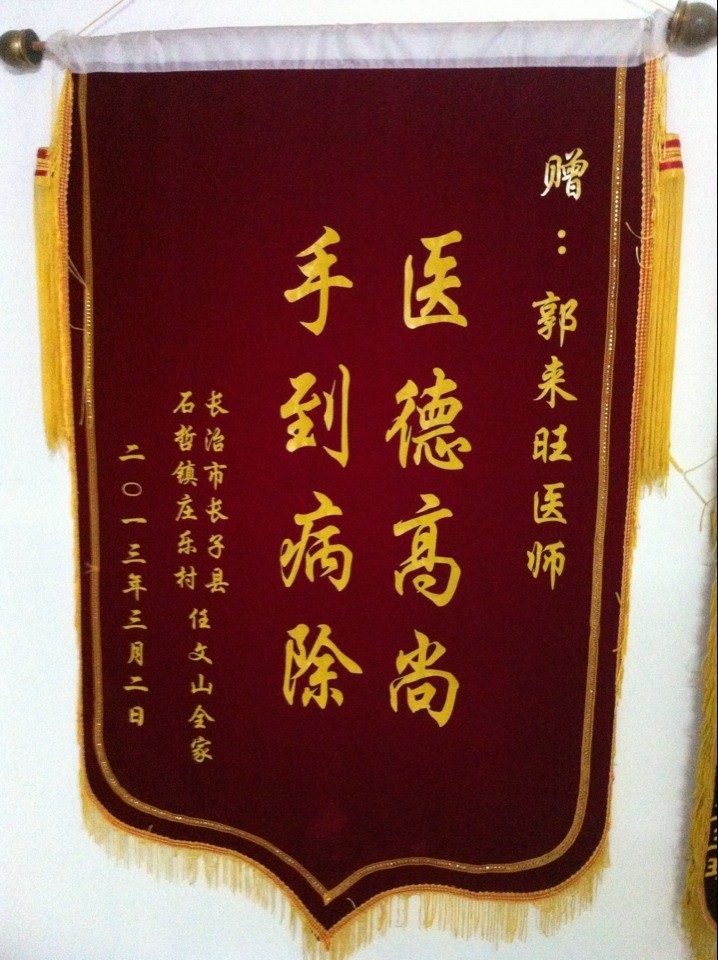 赠：郭来旺医师
医德高尚
手到病除
长治市长子县
石哲镇庄乐村
任文山全家
二〇一三年三月二日